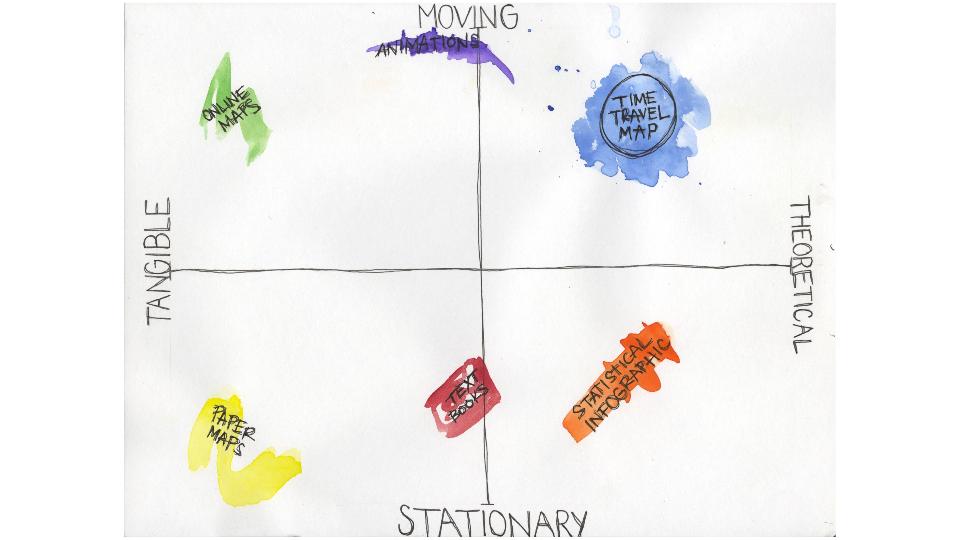 MOVING
ANIMATIONS
ONLINE
MAPS
TIME
TRAVEL
MAP
TANGIBLE
THEORETICAL
TEXT
BOOKS
STATISTICAL
INFOGRAPHIC
PAPER
MAPS
STATIONARY